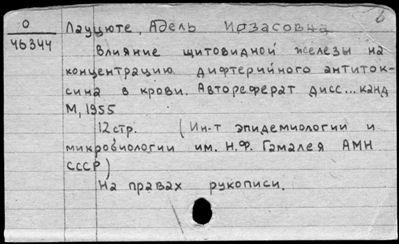 О
46344
Лауцюте, Адель Ирзасовна
Влияние щитовидной железы на
концентрацию дифтерийного антиток-
сина в крови. Автореферат дисс... канд
М, 1955
12 стр. (Ин-т эпидемиологии и
микробиологии им. Н.Ф. Гамалея АМН
СССР)
На правах рукописи.